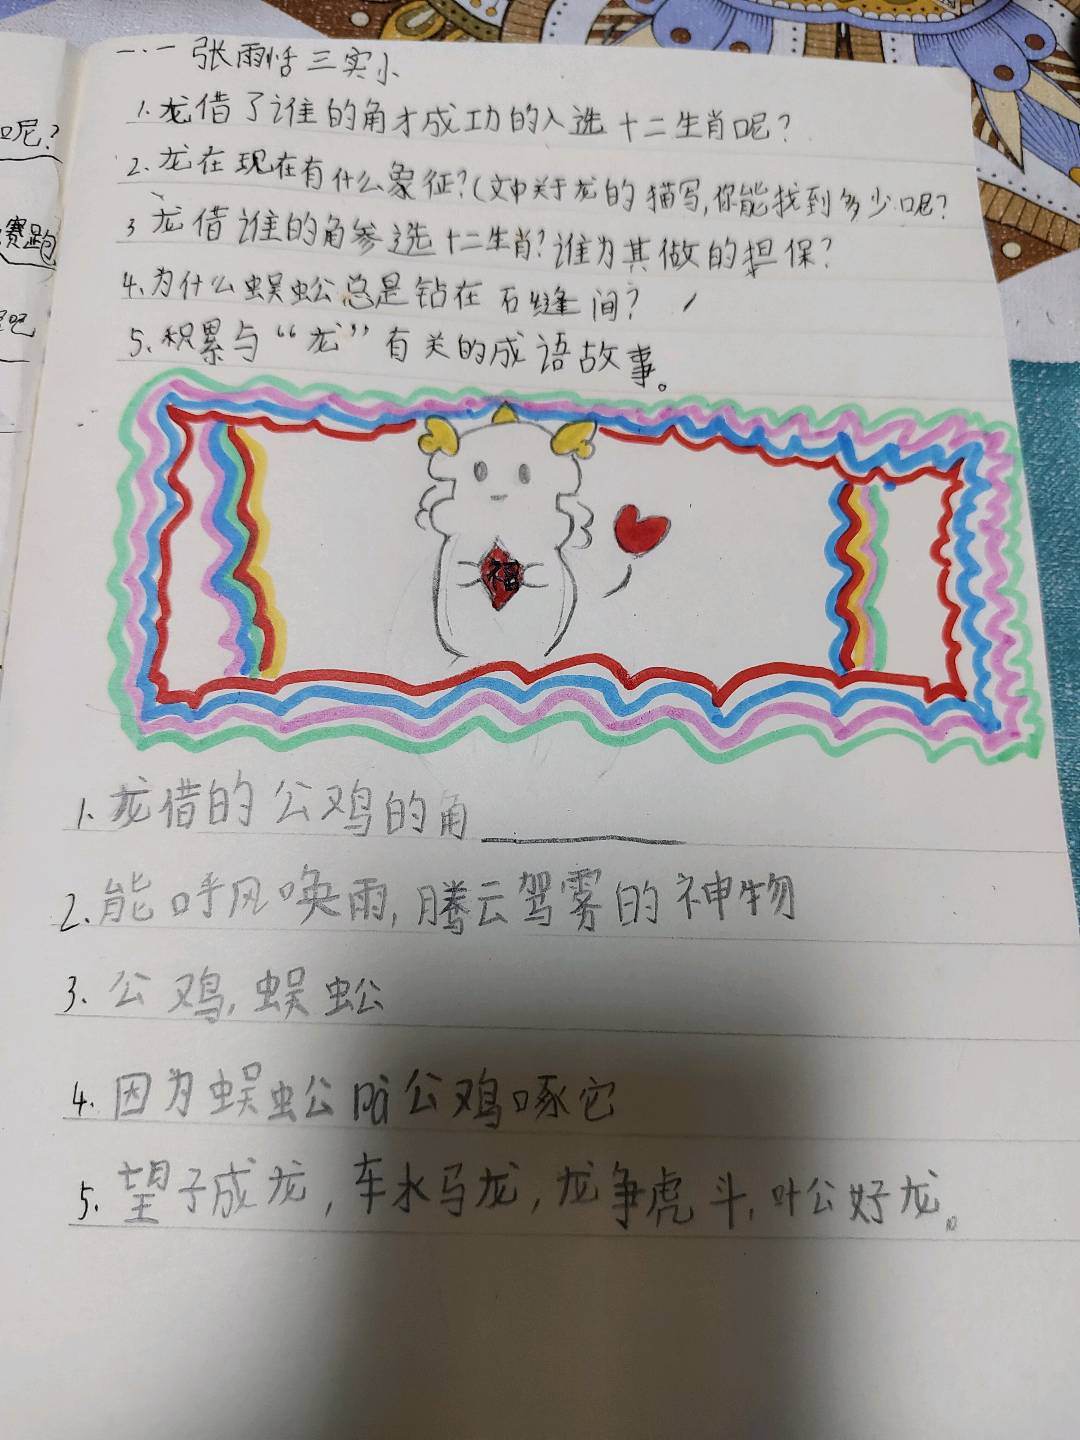 一.一张雨恬三实小
1.龙借了谁的角才成功的入选十二生肖呢?
2.龙在现在有什么象征?(文中关于龙的描写,你能找到多少呢?
3龙借谁的角参选十二生肖?谁为其做的担保?
4.为什么蜈蚣总是钻在石缝间?
5.积累与“龙”有关的成语故事。
福
1.龙借的公鸡的角
2.能呼风唤雨,腾云驾雾的神物
3.公鸡,蜈蚣
4.因为蜈蚣pà公鸡啄它
5.望子成龙,车水马龙,龙争虎斗,叶公好龙。
呢?
赛跑
吧